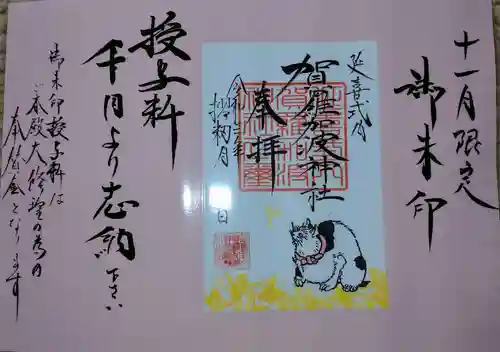 十一月限定
御朱印
延喜式内
賀羅加波神社
奉拝
令和
月 日
授与料
千円より志納下さい
御朱印授与料は
ご本殿大修理の為の
奉賛金となります